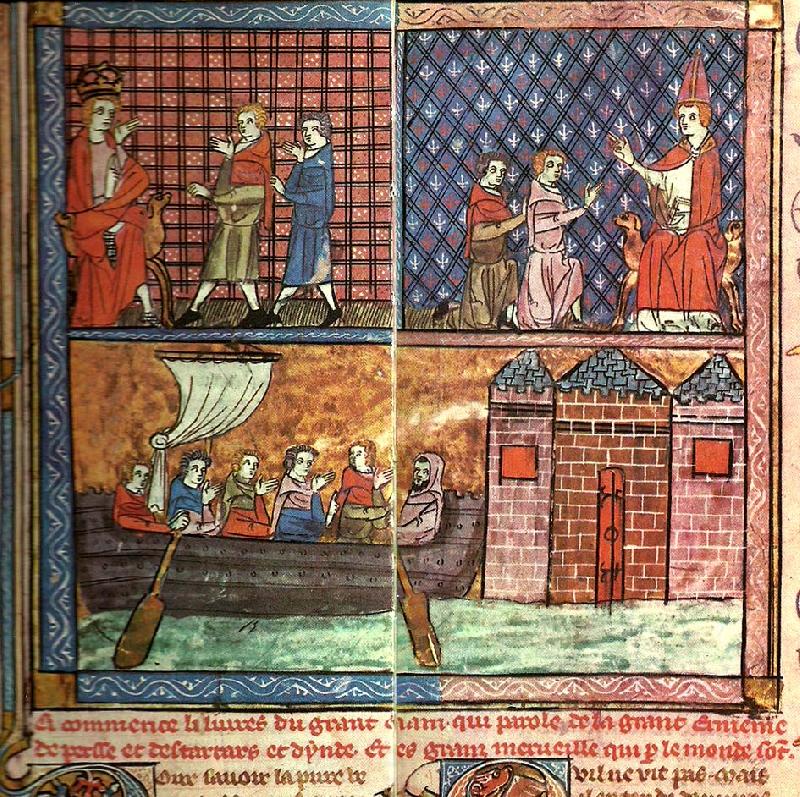 Ci commence li liures du grant caam qui parole de la grant ermenie
de persse et des tartars et dynde. Et des granz merueille qui p le monde sont.
Our sauoir la pure ve
uil ne vit pas. Mais